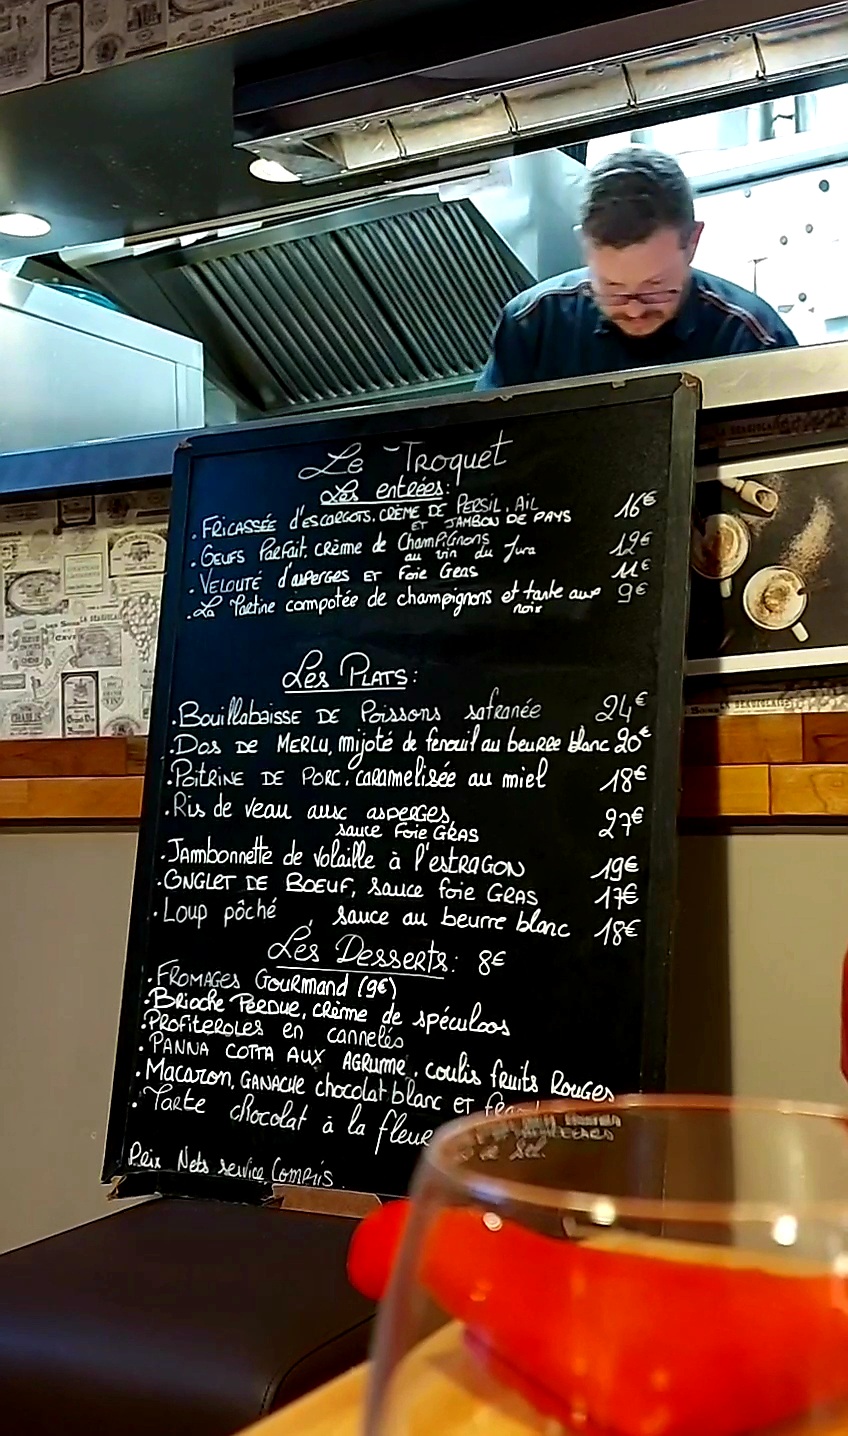 Le Troquet
Les entrées:
. FRICASSÉE d'escargots. CRÈME DE PERSIL. AIL 16€
ET JAMBON DE PAYS
. OEUFS PARFAIT. crème de CHAMPIGNONS 12€
au vin du Jura
. VELOUTÉ d'asperges ET Foie Gras 11€
. La Tartine compotée de champignons et tarte aux 9€
noix
Les PLATS:
. Bouillabaisse DE Poissons safranée 24€
. Dos DE MERLU, mijoté de fenouil au beurre blanc 20€
. Poitrine DE PORC. caramelisée au miel 18€
. Ris de veau aux asperges, 27€
sauce Foie GRAS
. JAMBonnette de volaille à l'ESTRAGON 19€
. ONGLET DE BOEUF, sauce foie GRAS 17€
. Loup pôché, sauce au beurre blanc 18€
Les Desserts: 8€
. FROMAGES Gourmand (9€)
. Brioche PERDUE, crème de spéculoos
. PROFITEROLES en cannelés
. PANNA COTTA AUX AGRUME. coulis fruits Rouges
. Macaron, GANACHE chocolat blanc ET
. Tarte chocolat à la fleur
Prix Nets service Compris.